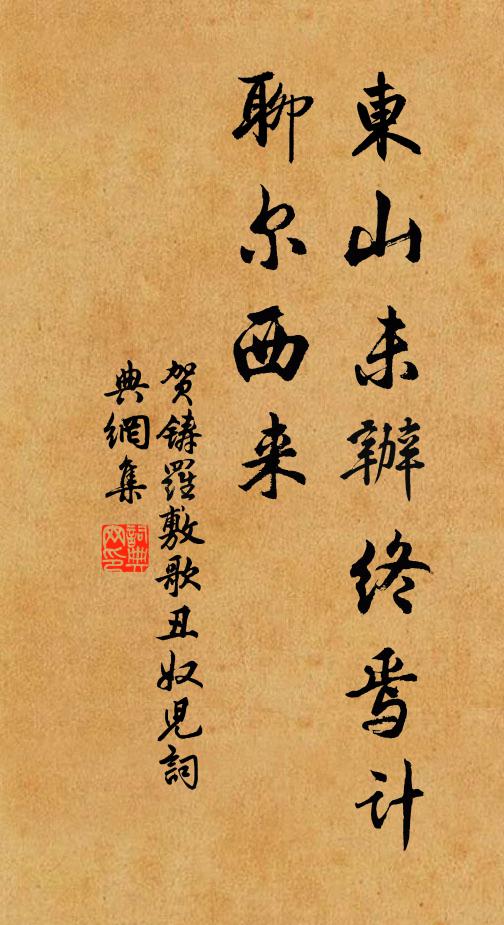 東山未辦終焉计
聊尔西来
贺鑄羅敷歌丑奴兒詞
典網集
詞典网印